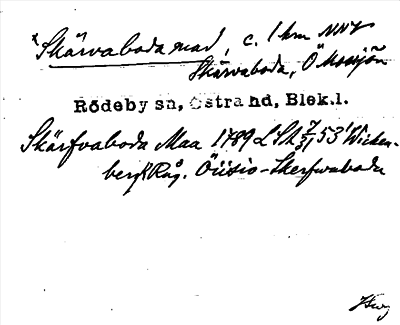 *Skärvaboda mad, c. 1 km NNV
Skärvaboda, Ö Mossjön
Rödeby sn, Östra hd, Blek.l.
Skärfvaboda Maa 1789 LSk 53 Wicken-
berg Råg. Skerfwaboda